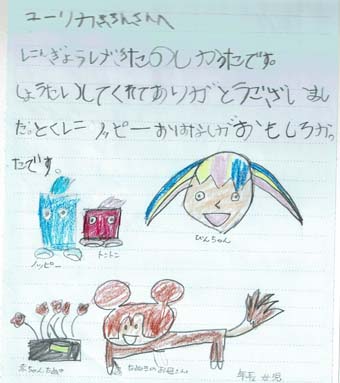 ユーリカきさんへ
にんぎょうしげきたのしかたです。
しょうたいしてくれてありがとうございまし
た。とくにノッピーおはなしがおもしろかっ
たです。
ぴんちゃん
ノッピー
トントン
赤ちゃんたぬき
たぬきのお母さん
年長 女児